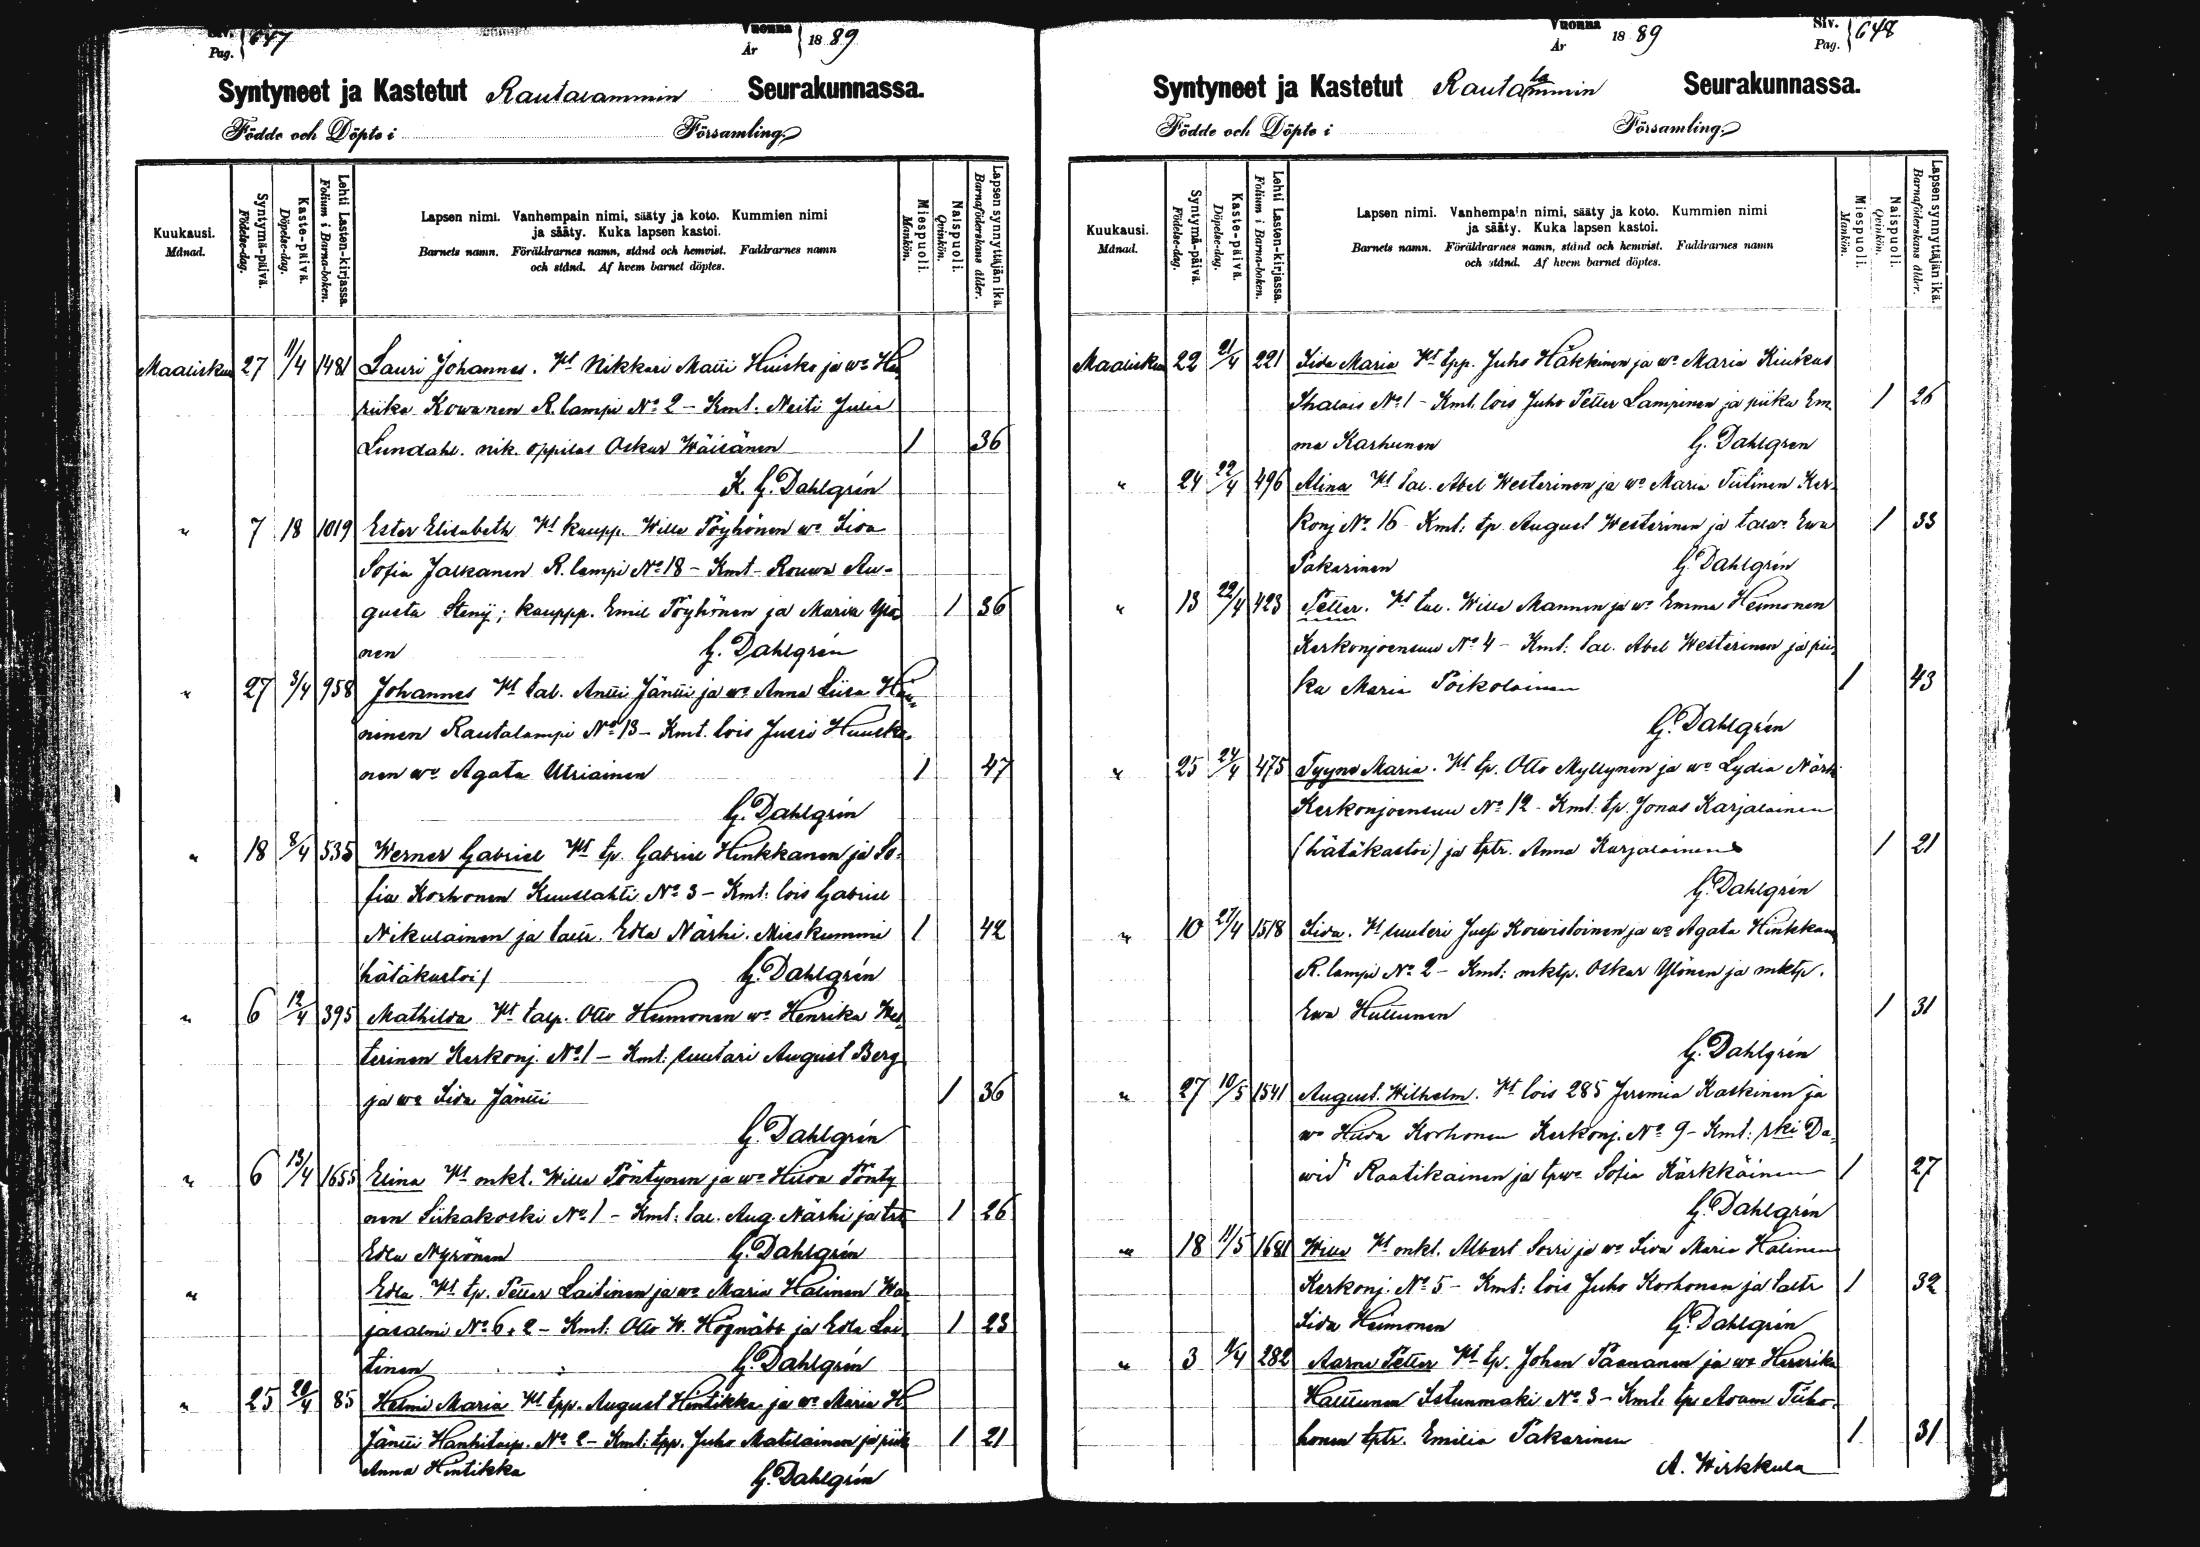 Pag. 647
Vuonna
År 1889
Syntyneet ja Kastetut Rautalammin Seurakunnassa.
Födde och Döpte i Församling.
Kuukausi.
Månad.
Syntymä-päivä.
Födelse-dag.
Kaste-päivä.
Döpelse-dag.
Lehti Lasten-kirjassa.
Folium i Barna-boken.
Lapsen nimi. Vanhempain nimi, sääty ja koto. Kummien nimi
ja sääty. Kuka lapsen kastoi.
Barnets namn. Föräldrarnes namn, stånd och hemvist. Faddrarnes namn
och stånd. Af hvem barnet döptes.
Miespuoli.
Mankön.
Naispuoli.
Qvinkön.
Lapsen synnyttäjän ikä.
Barnaföderskans ålder.
Maaliskuu 27 11/4 1481 Lauri Johannes. Vt Nikkari Matti Huisko ja wo Hen
riika Kowanen R.lampi No 2 – Kmt. Neiti Julia
Lundahl. nik. oppilas Oskar Wäisänen 1 36
K. G. Dahlgrén
" 7 18 1019 Ester Elisabeth Vt kaupp. Wille Pöyhönen wo Iida
Sofia Jalkanen R.lampi No 18 – Kmt – Rouwa Au-
gusta Stenij; kauppp. Emil Pöyhönen ja Maria Ylö 1 36
nen G. Dahlgrén
" 27 3/4 958 Johannes Vt tal. Antti Jäntti ja wo Anna Liisa Hän
ninen Rautalampi No 13 – Kmt. lois Jussi Huusko-
nen wo Agata Utriainen 1 47
G. Dahlgrén
" 18 8/4 535 Werner Gabriel Vt tp. Gabriel Hinkkanen ja So-
fia Korhonen Kuuslahti No 3 – Kmt: lois Gabriel
Nikulainen ja taltr. Edla Närhi. Mieskummi 1 42
hätäkastoi/ G. Dahlgrén
" 6 12/4 395 Mathilda Vt talp. Otto Heimonen wo Henrika Wes
terinen Kerkonj. No 1 – Kmt: suutari August Berg
ja wo Iida Jäntti 1 36
G. Dahlgrén
" 6 13/4 1655 Elina Vt mkl. Wille Pöntynen ja wo Hilda Pönty
nen Siikakoski No 1 – Kmt: tal. Aug. Närhi ja 1 26
Edla Nyrönen G. Dahlgrén
" Edla Vt tp. Petter Laitinen ja wo Maria Halinen Wa
jasalmi No 6, 2 – Kmt: Otto W. Högnäbb ja Edla Lai 1 23
tinen G. Dahlgrén
" 25 20/4 85 Helmi Maria Vt tpp. August Hintikka ja wo Maria H
Jäntti Hankitaip. No 2 – Kmt: tpp. Juho Matilainen ja piik 1 21
Anna Hintikka G. Dahlgrén
Vuonna
År 1889
Siv.
Pag. 648
Syntyneet ja Kastetut Rautalammin Seurakunnassa.
Födde och Döpte i Församling.
Kuukausi.
Månad.
Syntymä-päivä.
Födelse-dag.
Kaste-päivä.
Döpelse-dag.
Lehti Lasten-kirjassa.
Folium i Barna-boken.
Lapsen nimi. Vanhempain nimi, sääty ja koto. Kummien nimi
ja sääty. Kuka lapsen kastoi.
Barnets namn. Föräldrarnes namn, stånd och hemvist. Faddrarnes namn
och stånd. Af hvem barnet döptes.
Miespuoli.
Mankön.
Naispuoli.
Qvinkön.
Lapsen synnyttäjän ikä.
Barnaföderskans ålder.
Maaliskuu 22 21/4 221 Iida Maria Vt tpp. Juho Häkkinen ja wo Maria Kiukas
Ihalais No 1 – Kmt. lois Juho Petter Lampinen ja piika Em 1 26
ma Karhunen G. Dahlgrén
" 24 22/4 496 Alina Vt tal. Abel Westerinen ja wo Maria Tiitinen Ker-
konj No 16 – Kmt: tp. August Westerinen ja talwo Ewa 1 33
Pakarinen G. Dahlgrén
" 13 22/4 423 Petter. Vt tal. Wille Manninen ja wo Emma Heimonen
Kerkonjoensuu No 4 – Kmt: tal. Abel Westerinen ja pii-
ka Maria Poikolainen 1 43
G. Dahlgrén
" 25 24/4 475 Tyyne Maria. Vt tp. Otto Myllynen ja wo Lydia Närhi
Kerkonjoensuu No 12 – Kmt. tp. Jonas Karjalainen
(hätäkastoi) ja tptr. Anna Karjalainen 1 21
G. Dahlgrén
" 10 27/4 1518 Iida. Vt suutari Jusp Kouvistoinen ja wo Agata Hinkkan
R.lampi No 2 – Kmt: mktp. Oskar Ylönen ja mktp.
Ewa Huttunen 1 31
G. Dahlgrén
" 27 10/5 1541 August Wilhelm. Vt lois 285 Jeremia Kaskinen ja
wo Hilda Korhonen Kerkonj. No 9 – Kmt: rki Da-
wid Raatikainen ja tpwo Sofia Kärkkäinen 1 27
G. Dahlgrén
" 18 11/5 1681 Wille Vt mkl. Albert Sorri ja wo Iida Maria Halinen
Kerkonj. No 5 – Kmt: lois Juho Korhonen ja taltr 1 32
Iida Heimonen G. Dahlgrén
" 3 1/4 282 Aarne Petter Vt tp. Johan Paananen ja wo Henrika
Hattunen Istunmäki No 3 – Kmt: tp. Adam Tiiho-
honen tptr. Emilia Pakarinen 1 31
A. Wirkkula